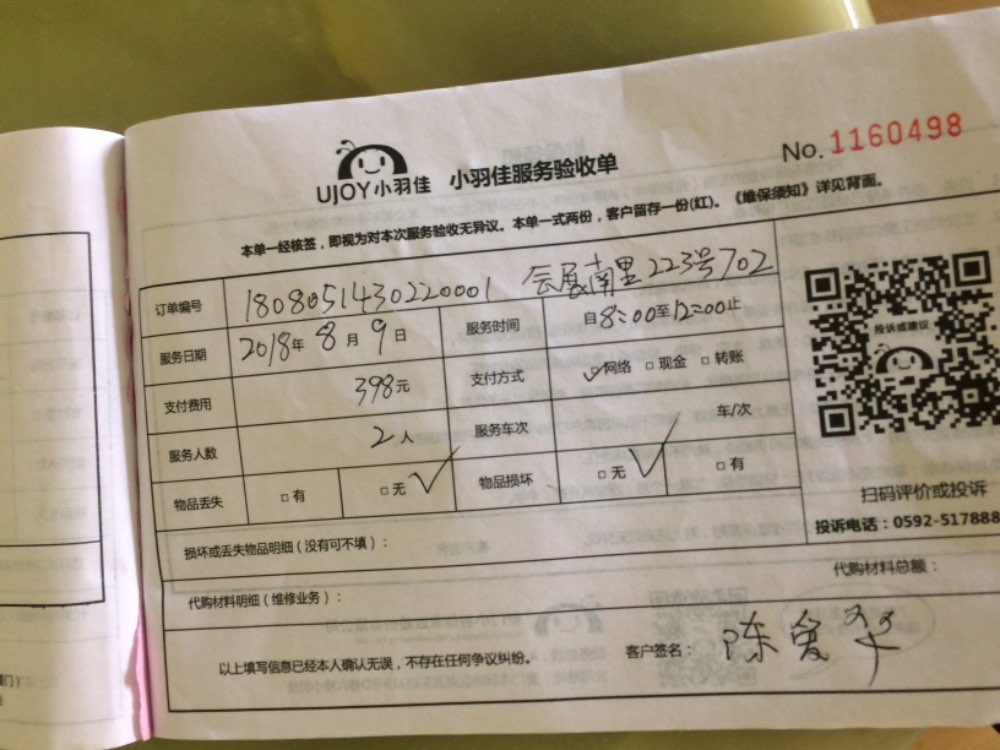 No. 1160498
UJOY小羽佳 小羽佳服务验收单
本单一经核签，即视为对本次服务验收无异议。本单一式两份，客户留存一份(红)。《维保须知》详见背面。
订单编号 1808051430220001 会展南里223号702
服务日期 2018年8月9日 服务时间 自8:00至12:00止
支付费用 398元 支付方式 □网络 □现金 □转账
服务人数 2人 服务车次 车/次
物品丢失 □有 □无 物品损坏 □无 □有
投诉或建议
扫码评价或投诉
投诉电话：0592-517888
损坏或丢失物品明细（没有可不填）：
代购材料明细（维修业务）： 代购材料总额：
以上填写信息已经本人确认无误，不存在任何争议纠纷。 客户签名： 陈爱